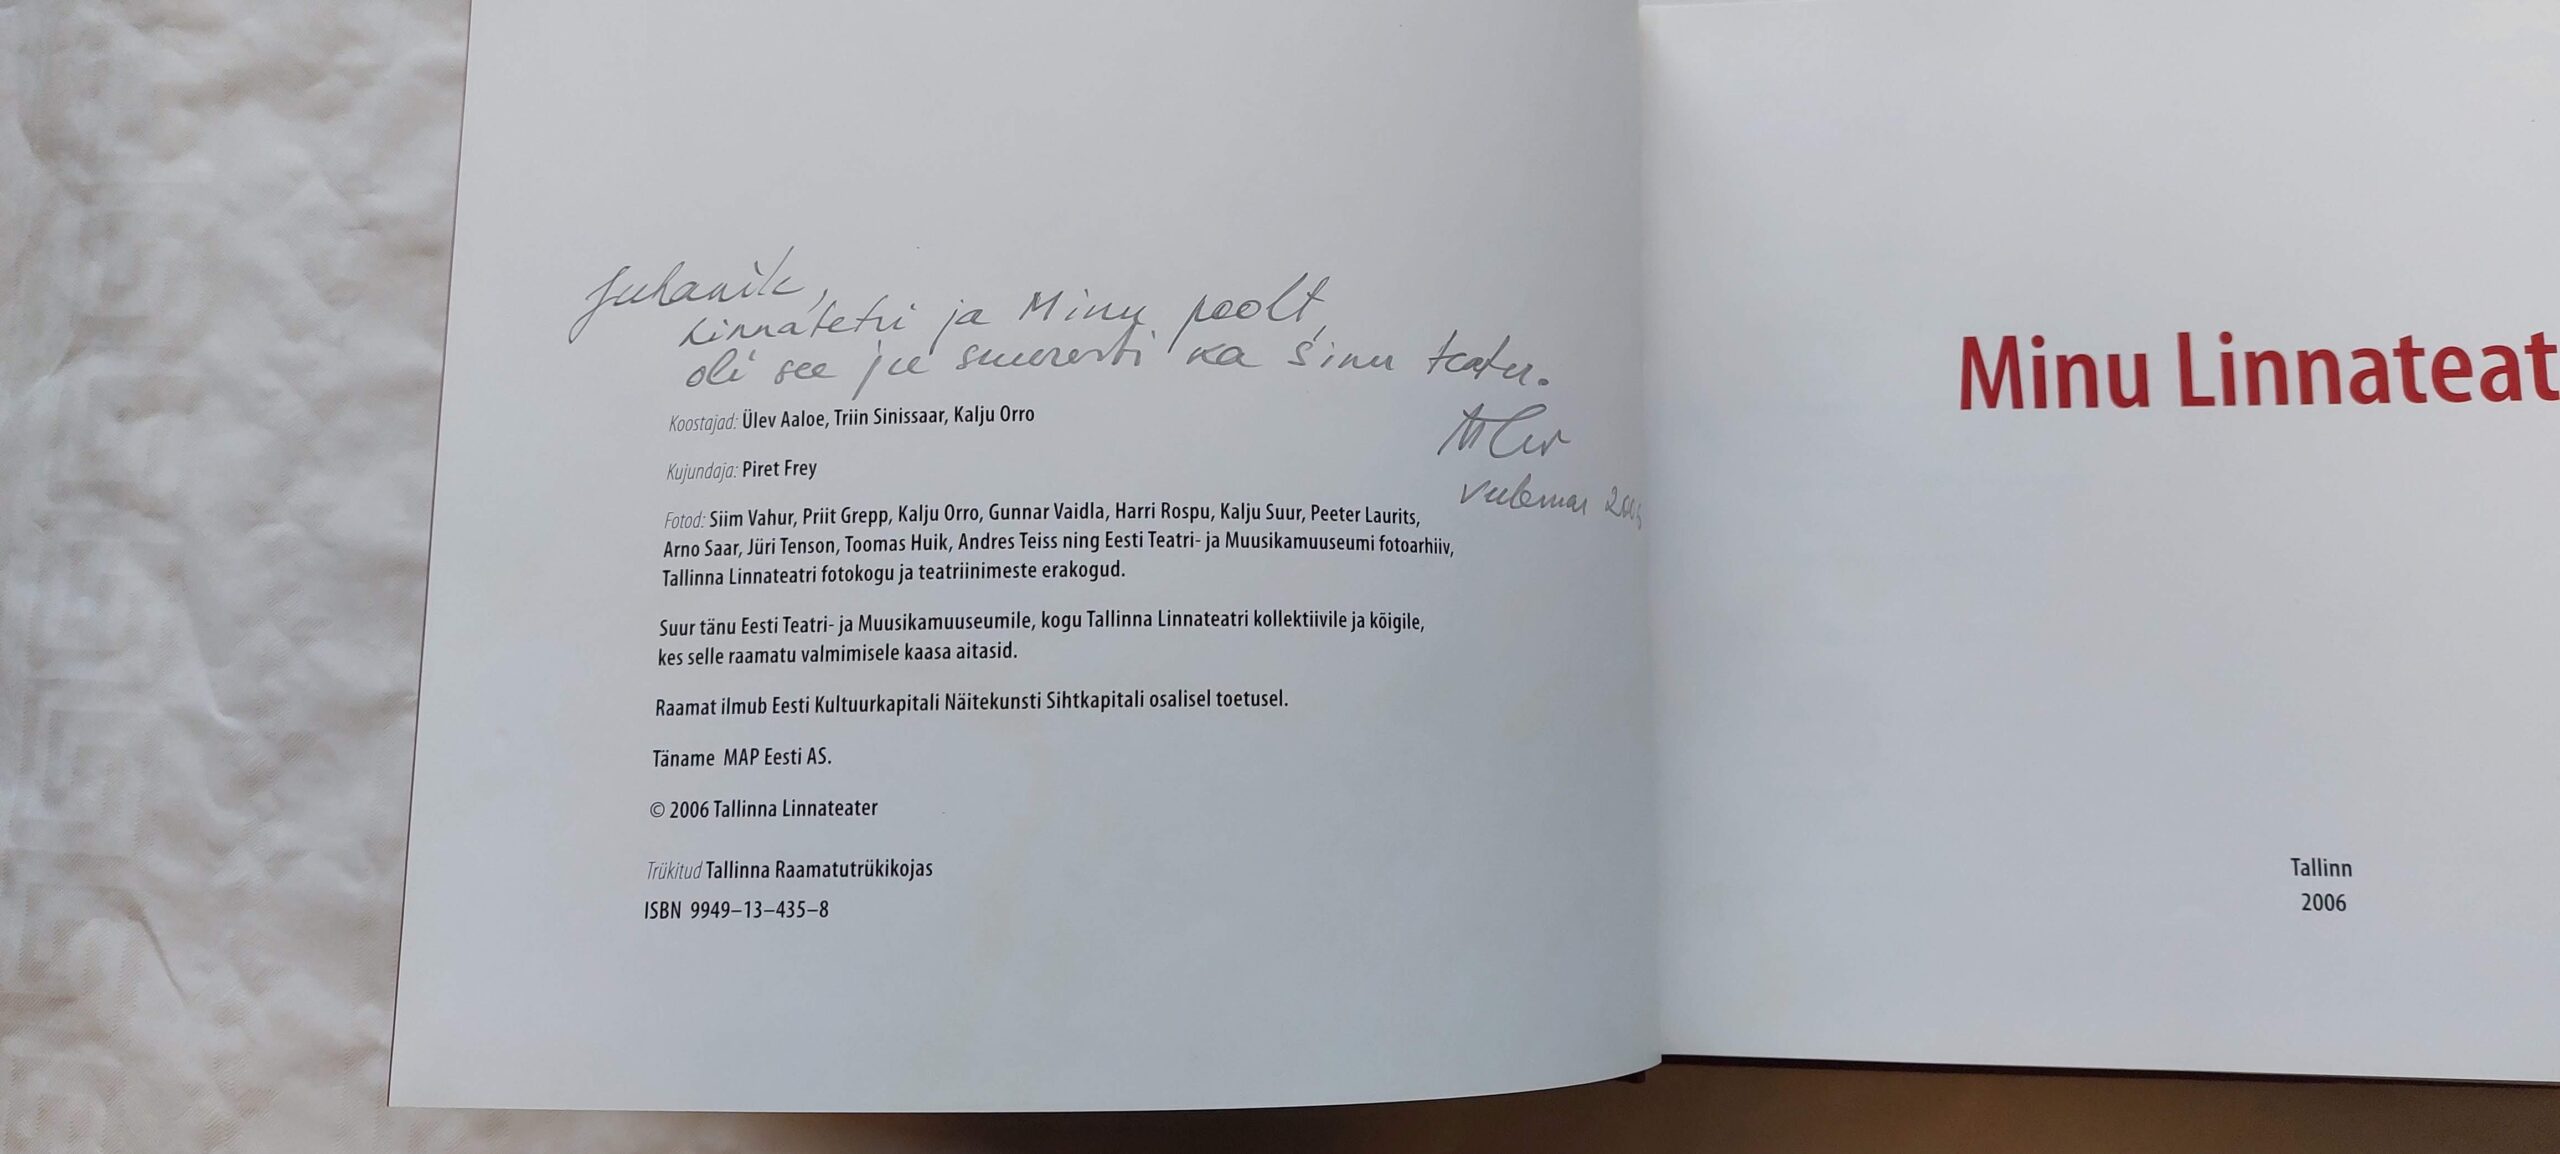 Juhanile,
Linnatetri ja Minu poolt,
oli see ju suuresti ka sinu teater.
2006
Koostajad: Ülev Aaloe, Triin Sinissaar, Kalju Orro
Kujundaja: Piret Frey
Fotod: Siim Vahur, Priit Grepp, Kalju Orro, Gunnar Vaidla, Harri Rospu, Kalju Suur, Peeter Laurits,
Arno Saar, Jüri Tenson, Toomas Huik, Andres Teiss ning Eesti Teatri- ja Muusikamuuseumi fotoarhiiv,
Tallinna Linnateatri fotokogu ja teatriinimeste erakogud.
Suur tänu Eesti Teatri- ja Muusikamuuseumile, kogu Tallinna Linnateatri kollektiivile ja kõigile,
kes selle raamatu valmimisele kaasa aitasid.
Raamat ilmub Eesti Kultuurkapitali Näitekunsti Sihtkapitali osalisel toetusel.
Täname MAP Eesti AS.
© 2006 Tallinna Linnateater
Trükitud Tallinna Raamatutrükikojas
ISBN 9949–13–435–8
Minu Linnateat
Tallinn
2006